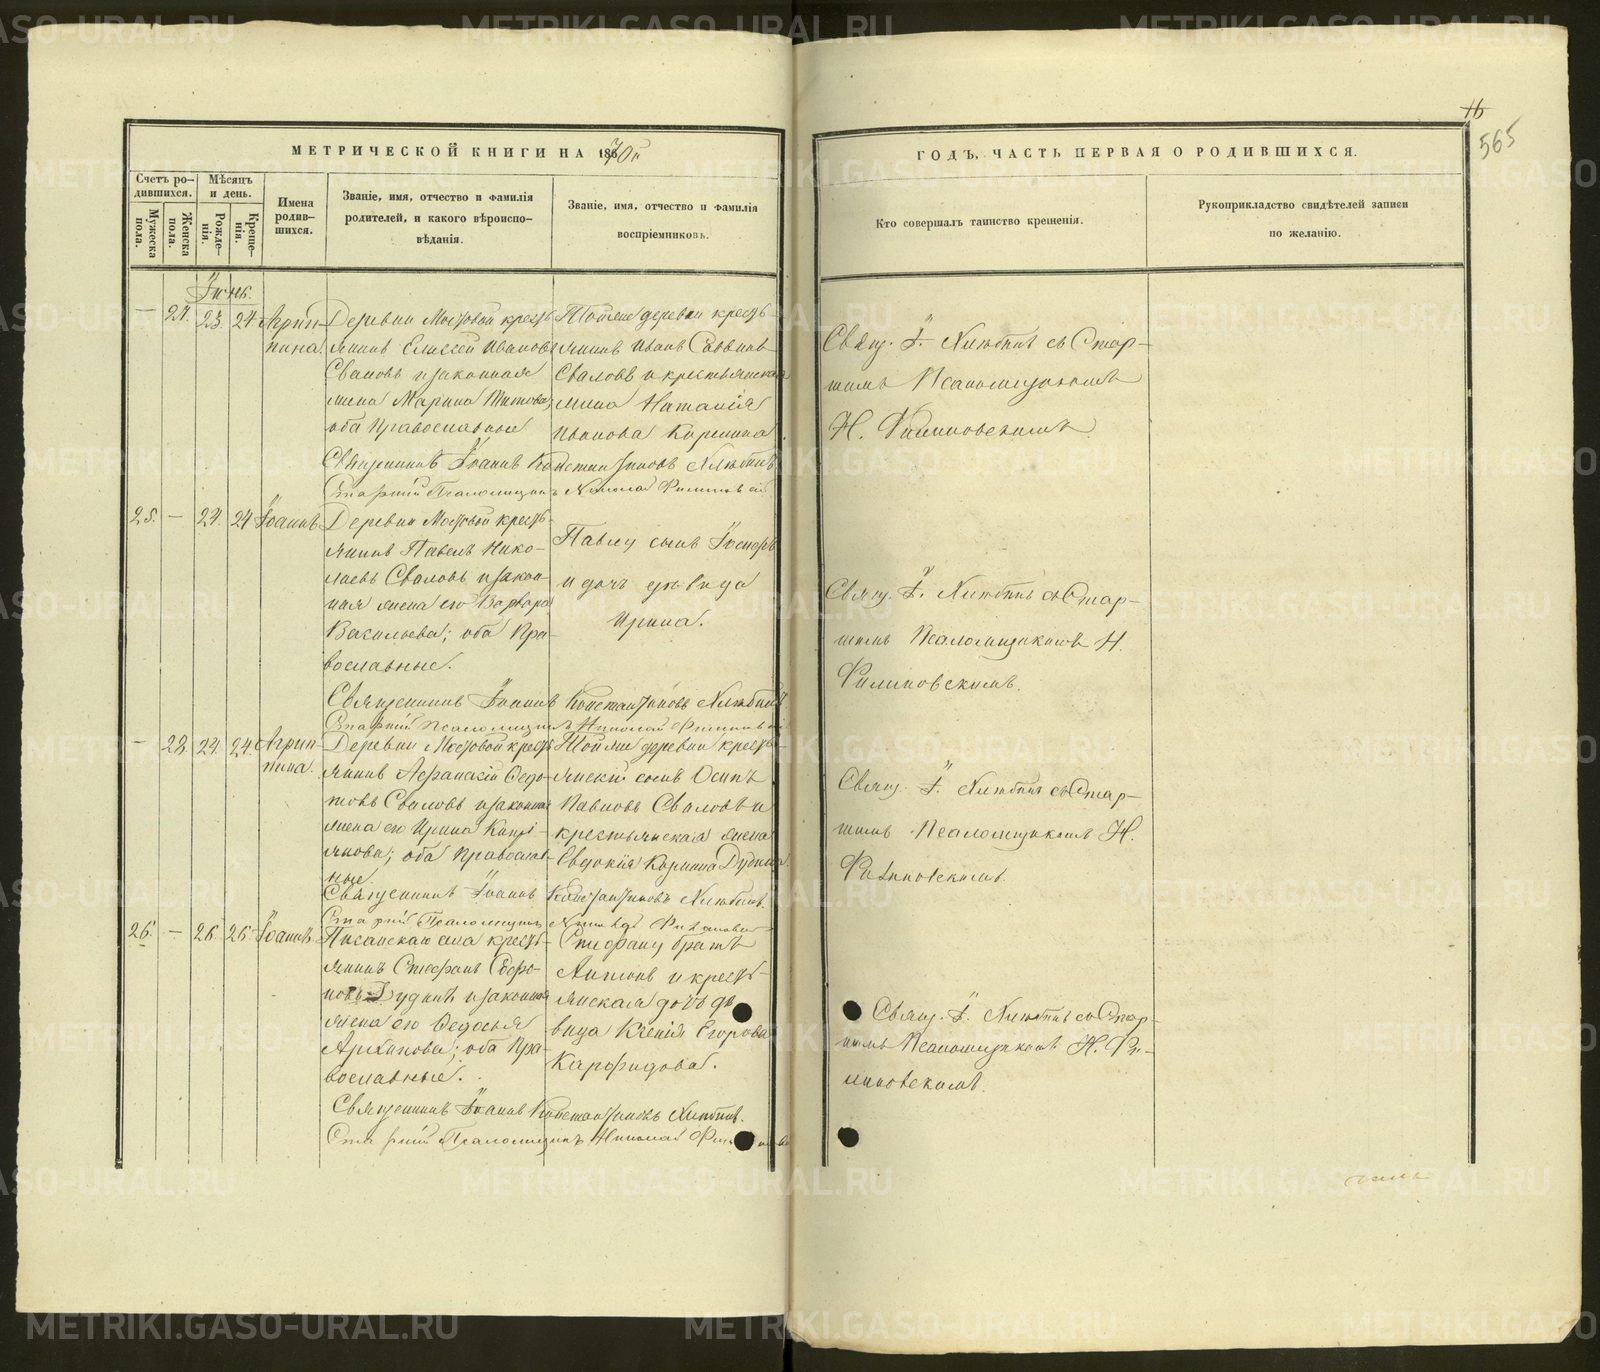 16
565
МЕТРИЧЕСКОЙ КНИГИ НА 1870й
ГОДЪ, ЧАСТЬ ПЕРВАЯ О РОДИВШИХСЯ.
Счетъ ро-
дившихся.
Мѣсяцъ
и день.
Мужеска
пола.
Женска
пола.
Рожде-
нія.
Креще-
нія.
Имена
родив-
шихся.
Званіе, имя, отчество и фамилія
родителей, и какого вѣроиспо-
вѣданія.
Званіе, имя, отчество и фамилія
воспріемниковъ.
Кто совершалъ таинство крещенія.
Рукоприкладство свидѣтелей записи
по желанію.
Іюнь.
— 27. 23. 24
Агрип-
пина.
Деревни Мостовой кресть-
янинъ Елисей Ивановъ
Сваловъ и законная
жена Марина Титова;
оба Православные
Тойже деревни кресть-
янинъ Иванъ Саввинъ
Сваловъ и крестьянская
жена Наталія
Иванова Карпина.
Свящ. І. Хлюбинъ съ Стар-
шимъ Псаломщикомъ
Н. Филиповскимъ.
Священникъ Іоаннъ Константиновъ Хлюбинъ
Старшій Псаломщикъ Николай
25. — 24. 24
Іоаннъ
Деревни Мостовой кресть-
янинъ Павелъ Нико-
лаевъ Сваловъ и закон-
ная жена его Варвара
Васильева; оба Пра-
вославные.
Павлу сынъ
и дочь дѣвица
Ирина.
Свящ. І. Хлюбинъ съ Стар-
шимъ Псаломщикомъ Н.
Филиповскимъ.
Священникъ Іоаннъ Константиновъ Хлюбинъ
Старшій Псаломщикъ Николай
— 28. 24. 24.
Агрип-
пина.
Деревни Мостовой кресть-
янинъ Ѳедо-
товъ Сваловъ и законная
жена его Ирина Капрі-
янова; оба Православ-
ные.
Тойже деревни кресть-
янскій сынъ Осипъ
Павловъ Сваловъ и
крестьянская жена
Евдокія Карпина Дудина
Свящ. І. Хлюбинъ съ Стар-
шимъ Псаломщикомъ Н.
Филиповскимъ.
Священникъ Іоаннъ Константиновъ Хлюбинъ.
Старшій Псаломщикъ
26. — 26. 26.
Іоаннъ.
Писанскаго села кресть-
янинъ Стефанъ Софро-
новъ Дудинъ и законная
жена его Ѳедосья
Архипова; оба Пра-
вославные.
Стефану братъ
Антонъ и кресть-
янская дочь дѣ-
вица Ксенія Егорова
Карфидова.
Свящ. І. Хлюбинъ съ Стар-
шимъ Псаломщикомъ Н. Фи-
липовскимъ.
Священникъ Іоаннъ Константиновъ Хлюбинъ.
Старшій Псаломщикъ Николай
METRIKI.GASO-URAL.RU